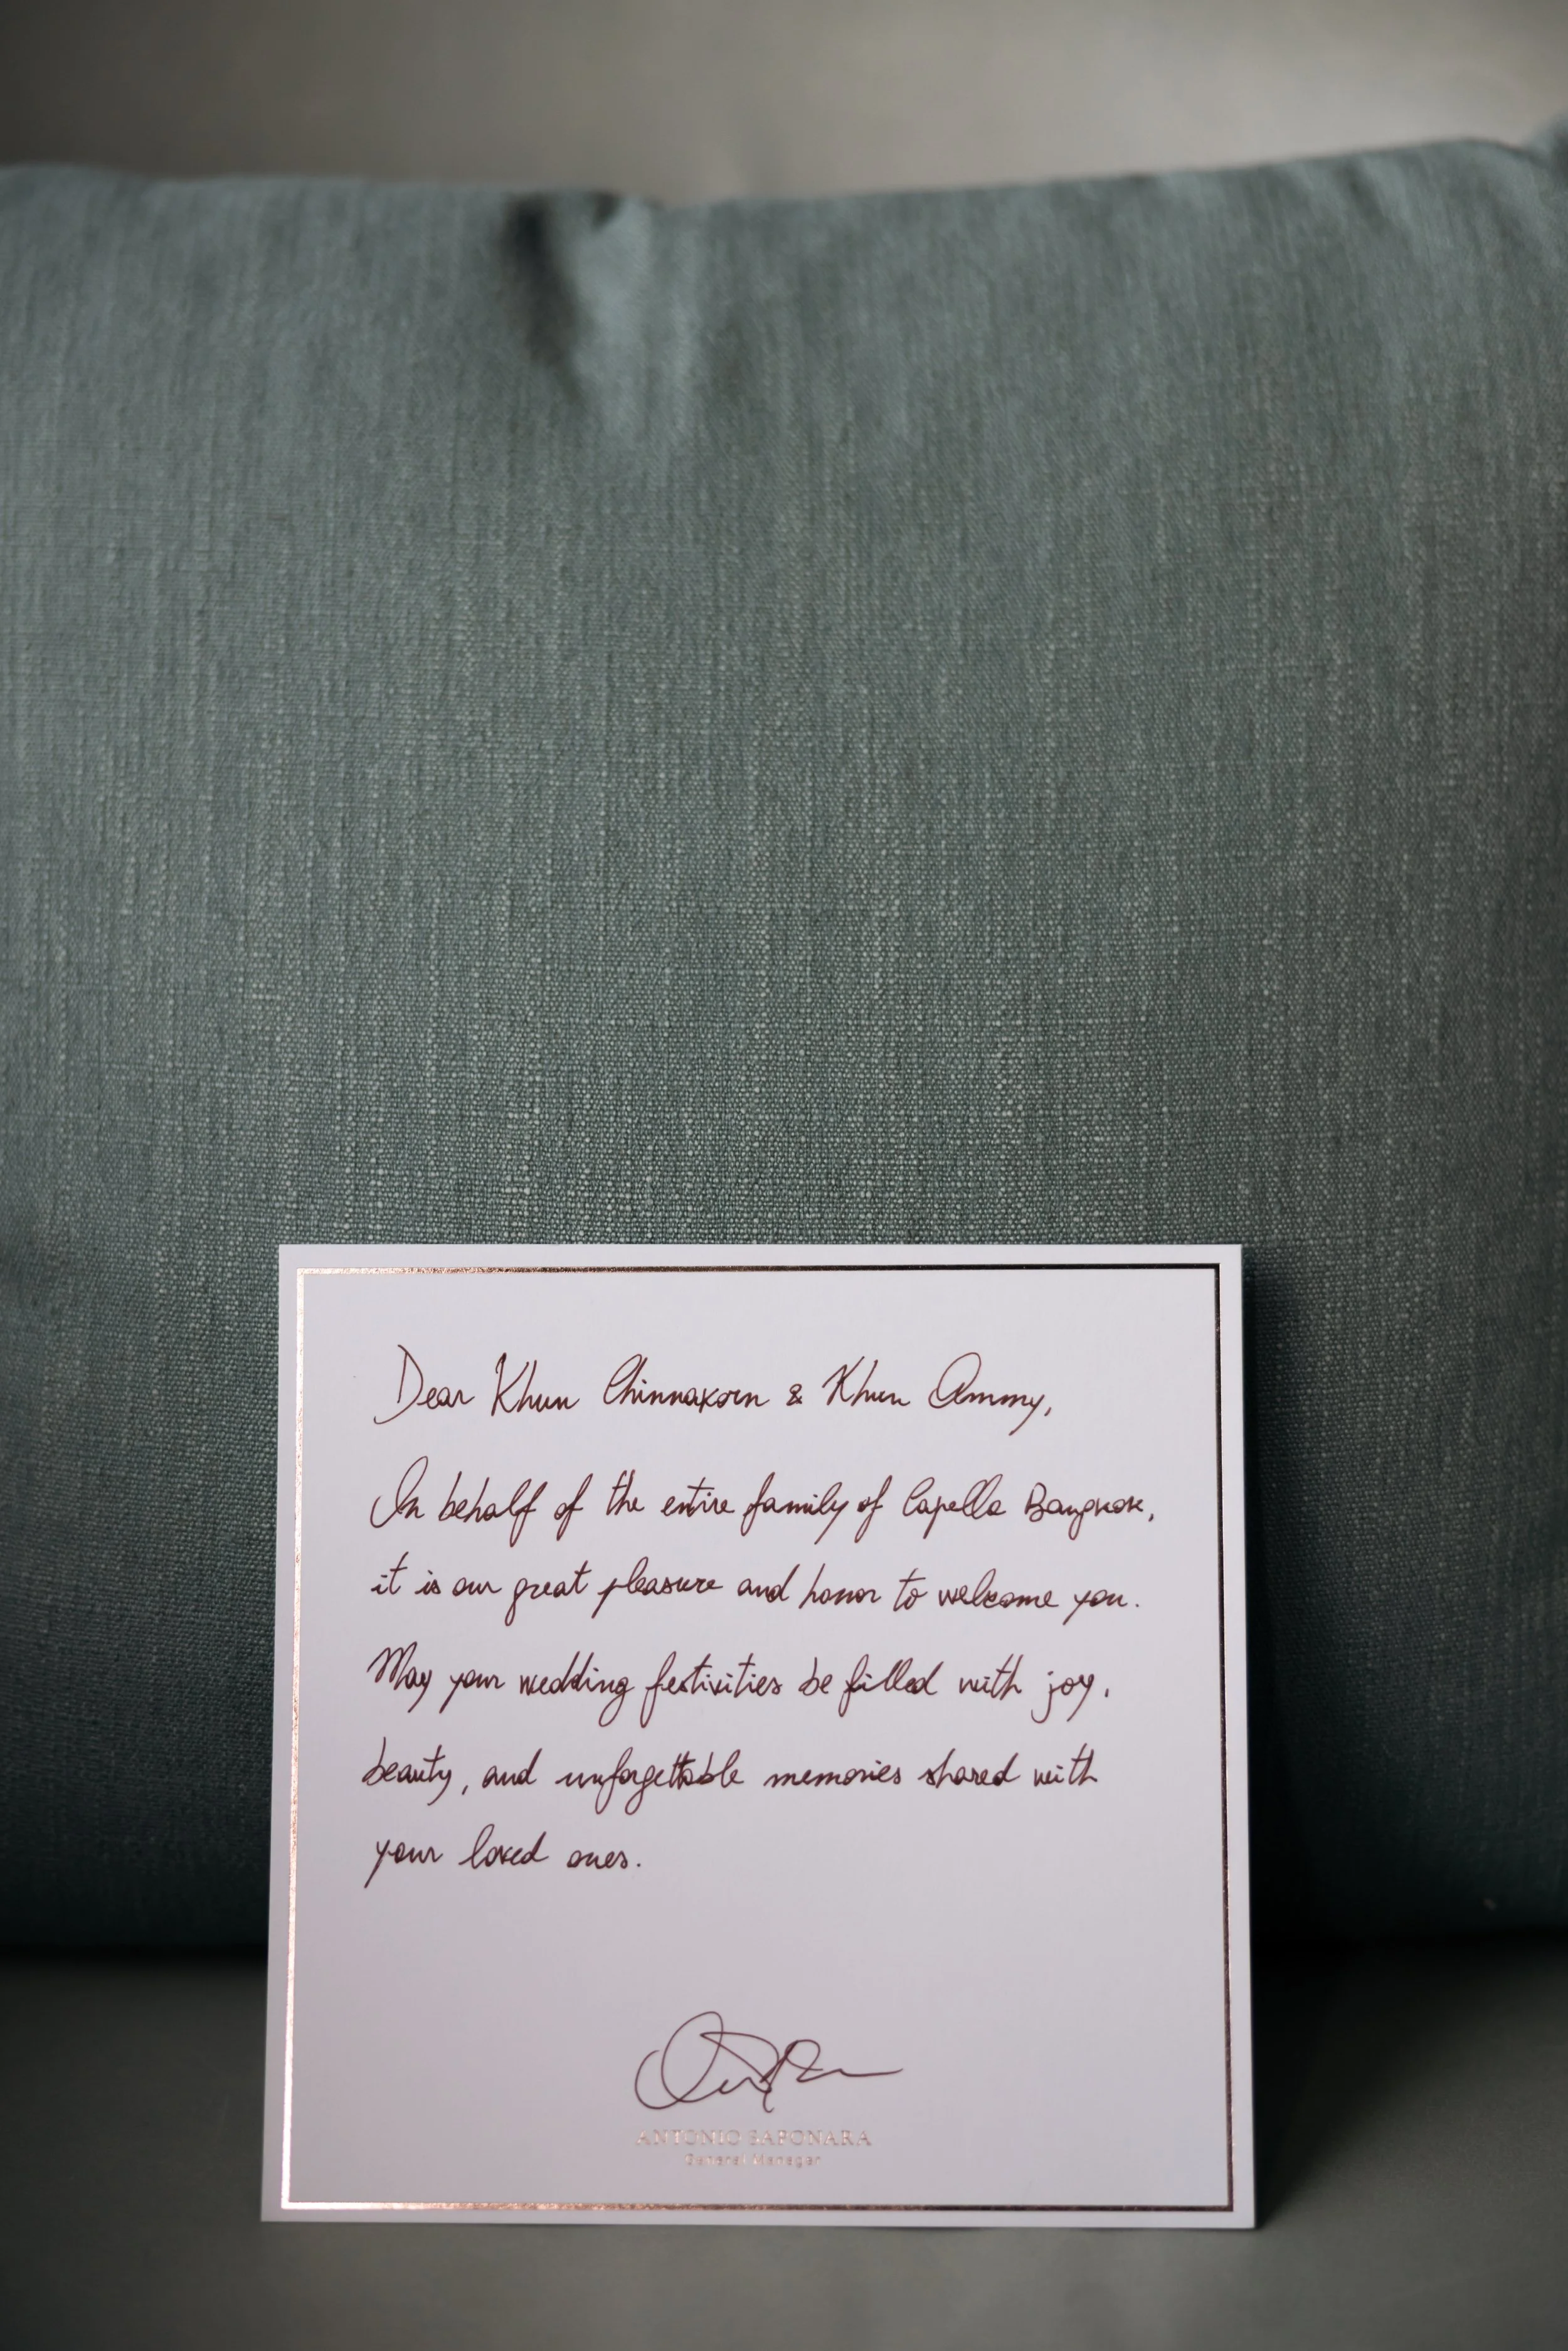 Dear Khun Chinnakorn & Khun Ammy,
On behalf of the entire family of Capella Bangkok,
it is our great pleasure and honor to welcome you.
May your wedding festivities be filled with joy,
beauty, and unforgettable memories shared with
your loved ones.
ANTONIO SAPONARA
General Manager